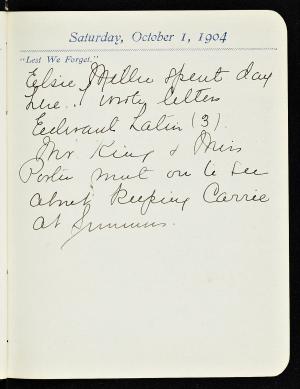 Saturday, October 1, 1904
"Lest We Forget."
Elsie, Mellie spent day
here. I wrote letters
Edward Latin (3).
Mr. King & Miss
Porter met on to see
about keeping Carrie
at